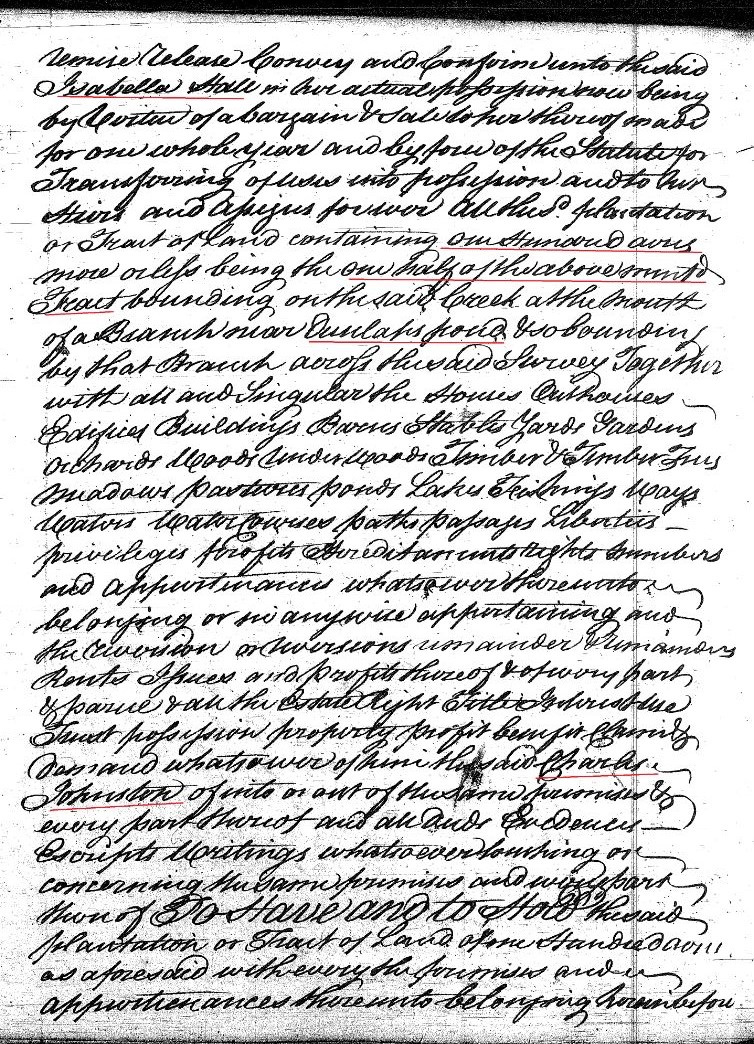 remise release Convey and Confirm unto the said
Isabella Hall in her actual possession now being
by Virtue of a bargain & sale to her thereof made
for one whole year and by force of the Statute for
Transferring of uses into possession and to her
Heirs and assigns forever All the sd. plantation
or Tract of land containing one Hundred acres
more or less being the one half of the above mentd
Tract bounding on the said Creek at the mouth
of a Branch near Dunlaps pond & so bounding
by that Branch across the said Survey Together
with all and Singular the Houses Outhouses
Edifices Buildings Barns Stables Yards Gardens
Orchards Woods Underwoods Timber & Timber Trees
Meadows pastures ponds Lakes Fishings Ways
Waters Watercourses paths passages Liberties
privileges profits Hereditaments rights members
and appurtinances whatsoever thereunto
belonging or in anywise appertaining and
the reversion or reversions remainder & remainders
Rents Issues and profits thereof & of every part
& parcel & all the Estate Right Title Interest use
Trust possession property profit benefit Claim &
demand whatsoever of him the said Charles
Johnston of into or out of the same premises &
every part thereof and all Deeds Evidences
Escripts Writings whatsoever touching or
concerning the same premises and every part
thereof To Have and to Hold the said
plantation or Tract of Land of one Hundred acres
as aforesaid with every the premises and
appurtienances thereunto belonging herein before